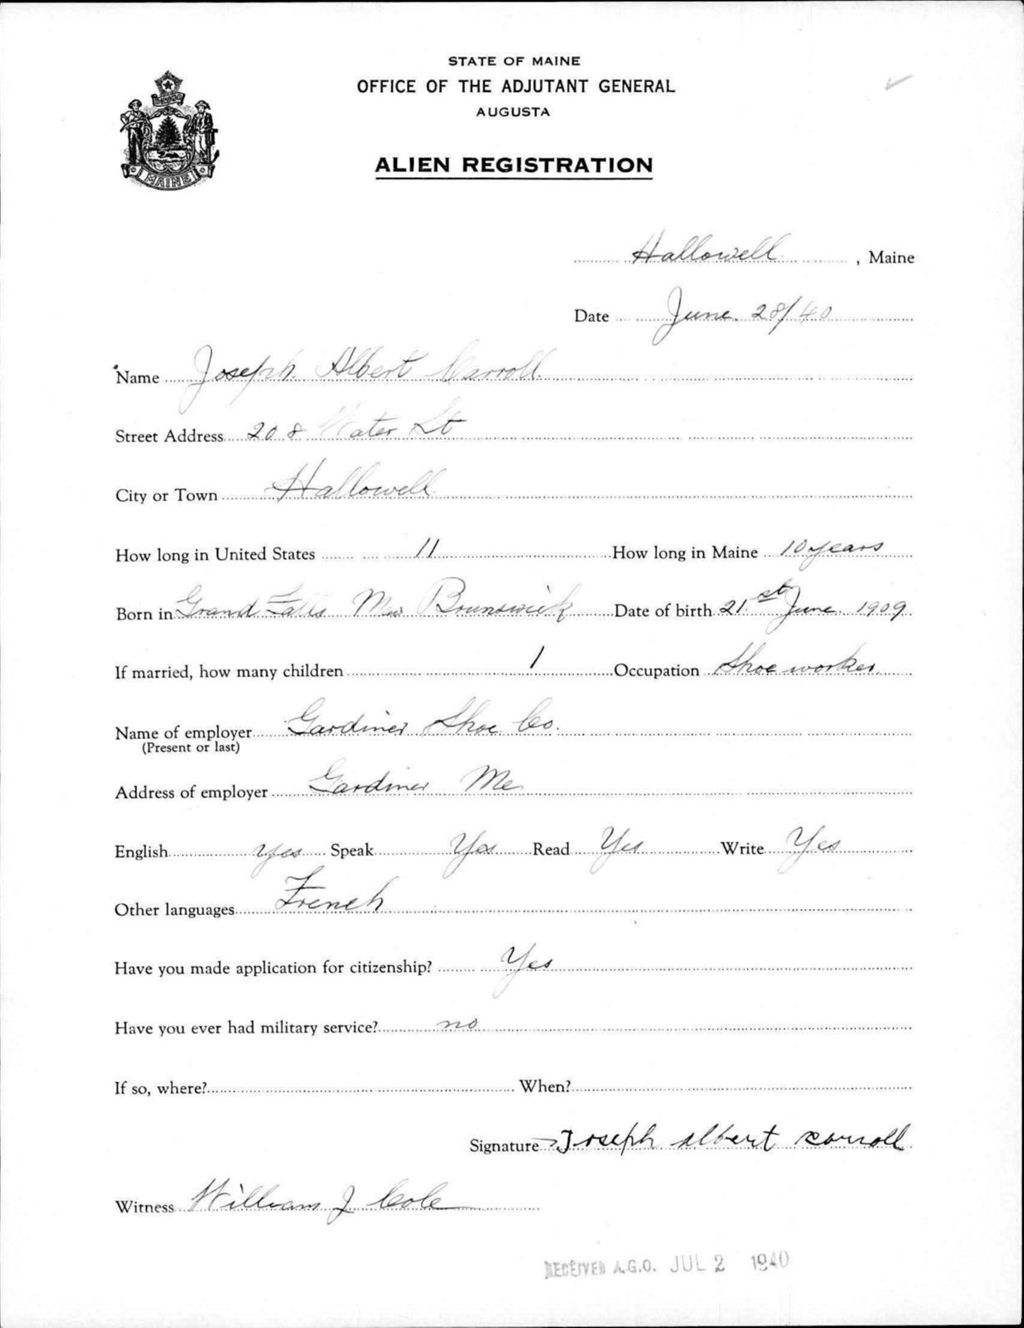 STATE OF MAINE
OFFICE OF THE ADJUTANT GENERAL
AUGUSTA
ALIEN REGISTRATION
MAINE
Hallowell, Maine
Date June. 28/40
Name Joseph Albert Carroll
Street Address 208 Water St
City or Town Hallowell
How long in United States 11 How long in Maine 10 years
Born in Grand Falls New Brunswick Date of birth 21st June. 1909.
If married, how many children 1 Occupation Shoe worker
Name of employer Gardiner Shoe Co.
(Present or last)
Address of employer Gardiner Me
English yes Speak Yes Read Yes Write Yes
Other languages French
Have you made application for citizenship? Yes
Have you ever had military service? no
If so, where? When?
Signature Joseph albert carroll
Witness William J Cole
RECEIVED A.G.O. JUL 2 1940